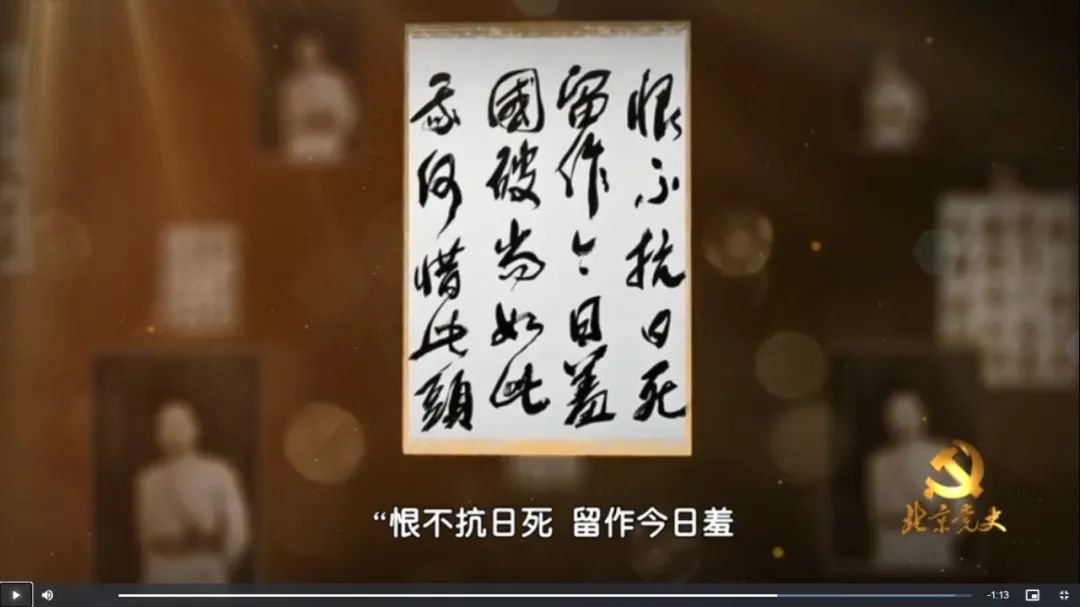 恨不抗日死
留作今日羞
國破尚如此
我何惜此頭
“恨不抗日死 留作今日羞
北京党史
-1:13